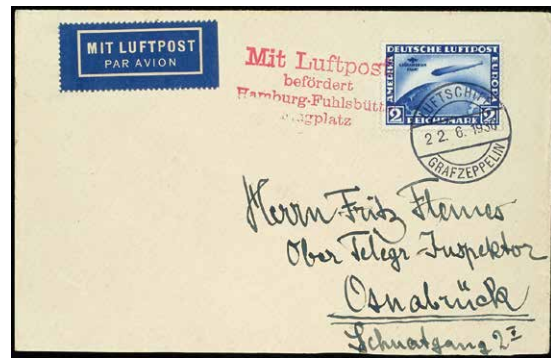 MIT LUFTPOST
PAR AVION
Mit Luftpost
befördert
Hamburg-Fuhlsbütt
DEUTSCHE LUFTPOST
AMERIKA
EUROPA
2
2
REICHSMARK
LUFTSCHIFF
22.6.193
GRAF ZEPPELIN
Herrn Fritz
Ober Telegr Inspektor
Osnabrück